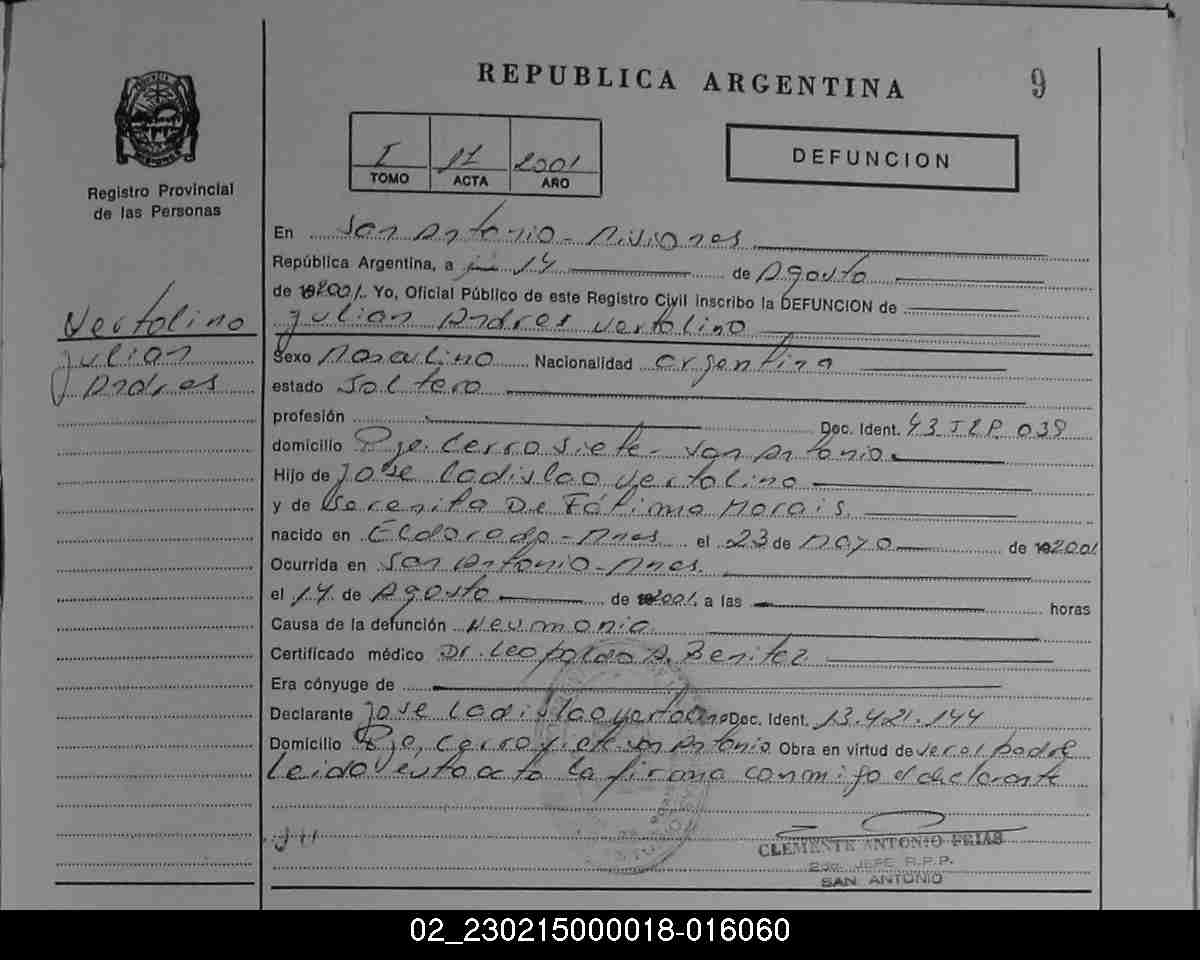 REPUBLICA ARGENTINA
9
I 11 2001
TOMO ACTA AÑO
DEFUNCION
Registro Provincial
de las Personas
Vertolino
Julian
Andres
En San Antonio - Misiones
República Argentina, a 14 de Agosto
de 2001. Yo, Oficial Público de este Registro Civil inscribo la DEFUNCION de
Julian Andres Vertolino
Sexo Masculino Nacionalidad argentina
estado Soltero
profesión Doc. Ident. 43 038
domicilio Pje. Cerro Siete - San Antonio.
Hijo de Jose Ladislao Vertolino
y de Serenita De Fátima Morais.
nacido en Eldorado - Mnes. el 23 de Mayo de 2001
Ocurrida en San Antonio - Mnes.
el 14 de Agosto de 2001, a las horas
Causa de la defunción Neumonia.
Certificado médico Dr. Leopoldo A. Benitez
Era cónyuge de
Declarante Jose Ladislao Vertolino Doc. Ident. 13.421.144
Domicilio Pje. Cerro Siete San Antonio Obra en virtud de ser el padre
Leido esta acta la firma conmigo el declarante
CLEMENTE ANTONIO FRIAS
2do. JEFE R.P.P.
SAN ANTONIO
02_230215000018-016060